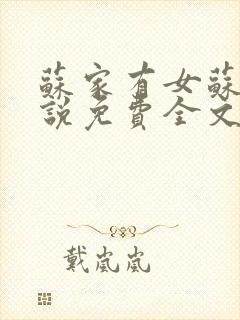 蘇家有女蘇
說免費全文
戴嵐嵐